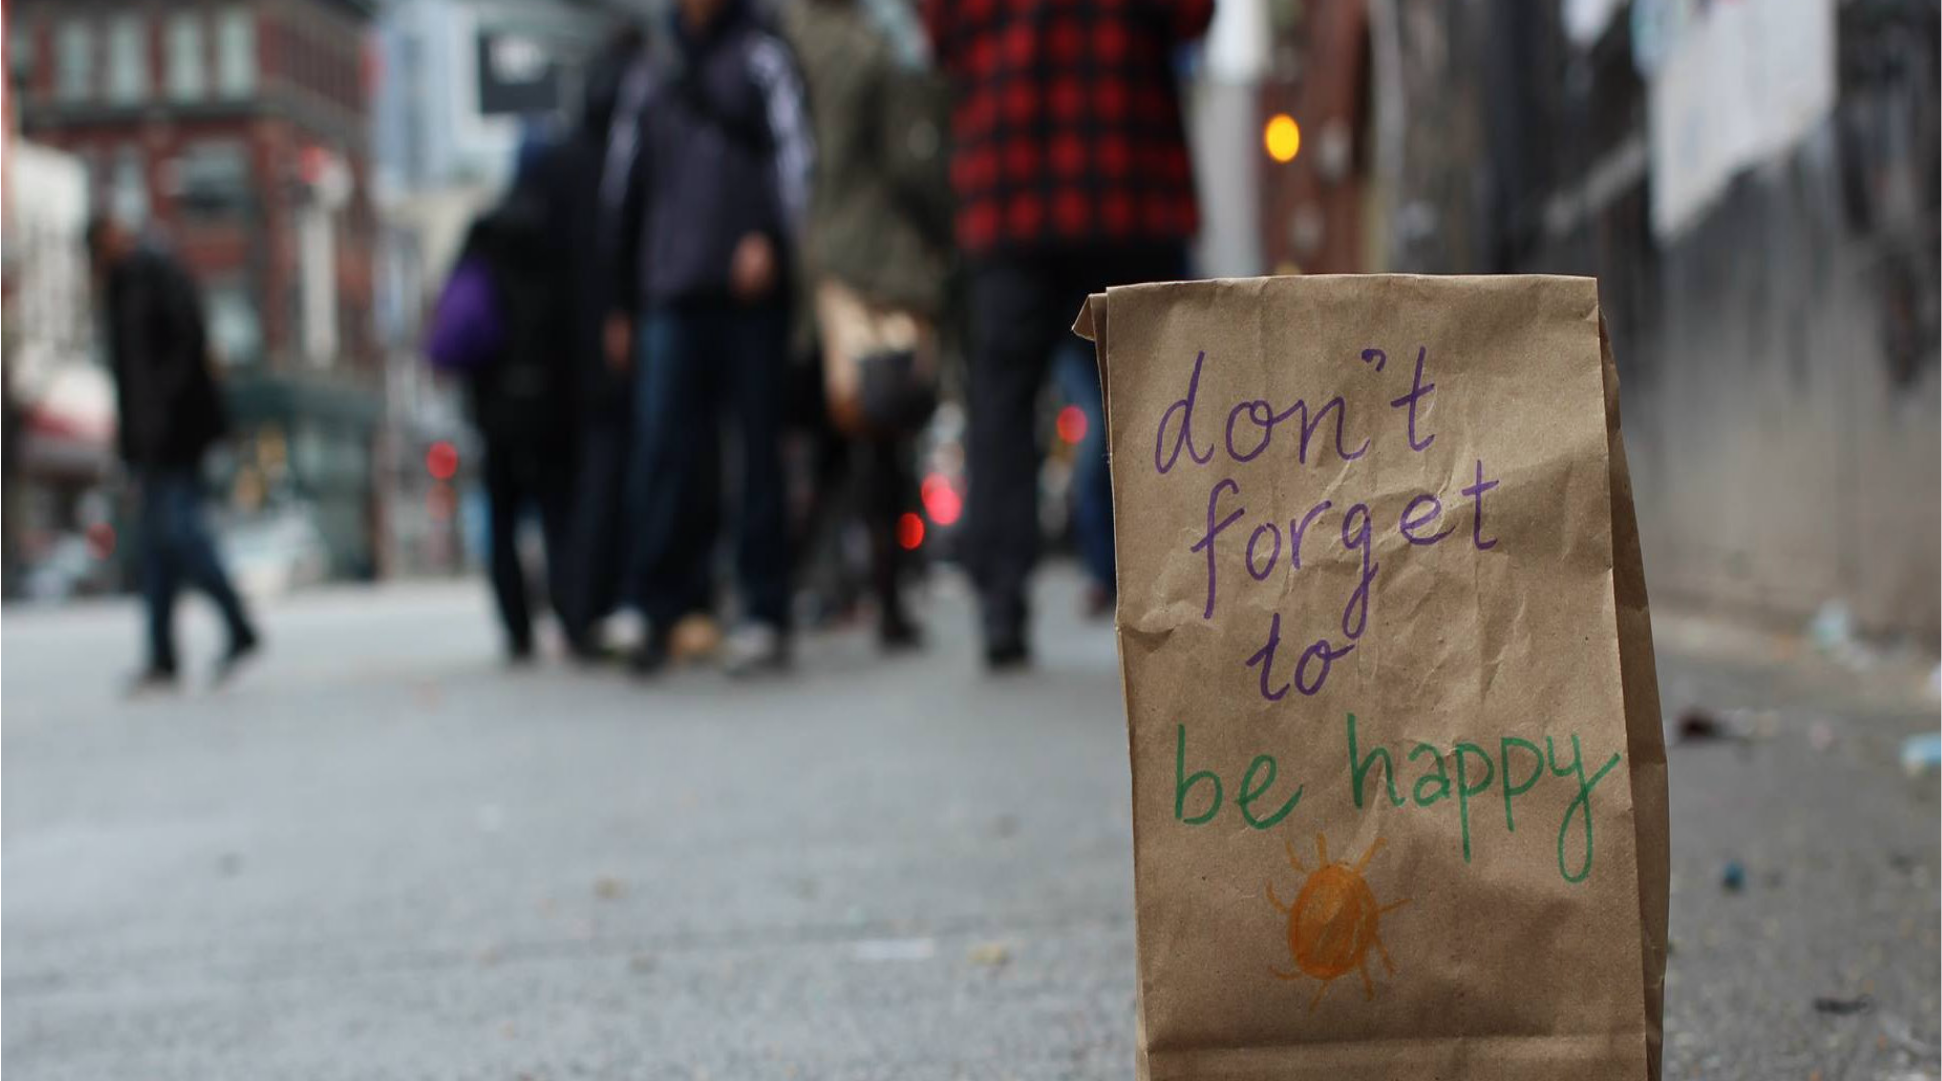 don't
forget
to
be happy